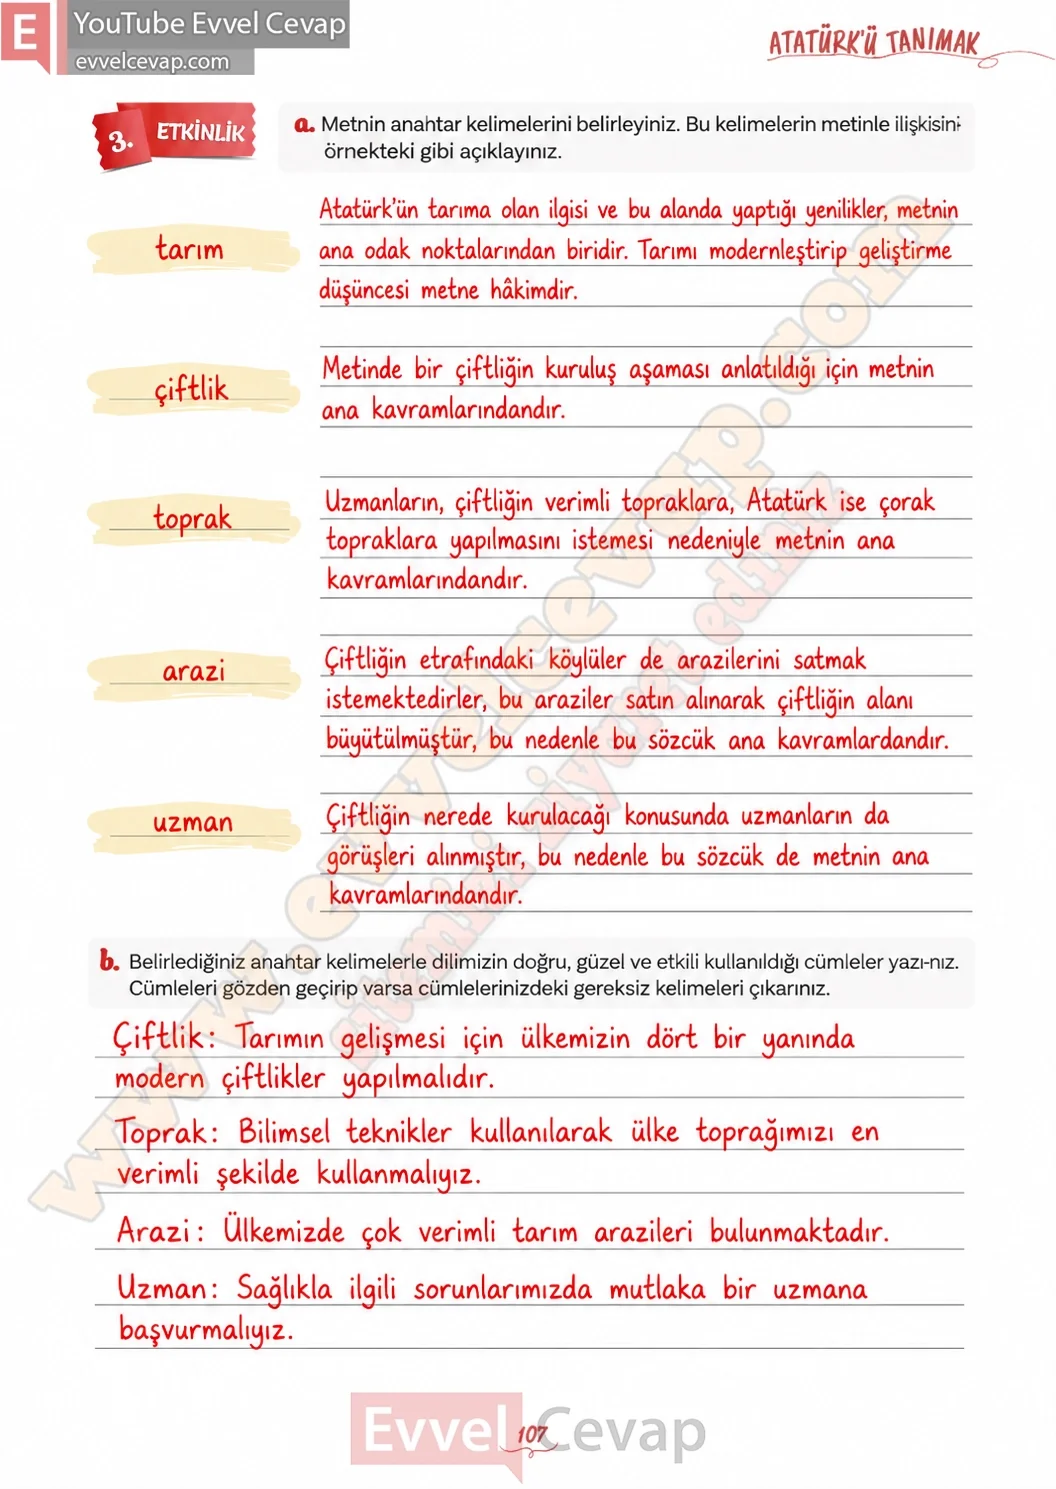 E YouTube Evvel Cevap
evvelcevap.com
ATATÜRK'Ü TANIMAK
3. ETKİNLİK
a. Metnin anahtar kelimelerini belirleyiniz. Bu kelimelerin metinle ilişkisini
örnekteki gibi açıklayınız.
tarım
Atatürk'ün tarıma olan ilgisi ve bu alanda yaptığı yenilikler, metnin
ana odak noktalarından biridir. Tarımı modernleştirip geliştirme
düşüncesi metne hâkimdir.
çiftlik
Metinde bir çiftliğin kuruluş aşaması anlatıldığı için metnin
ana kavramlarındandır.
toprak
Uzmanların, çiftliğin verimli topraklara, Atatürk ise çorak
topraklara yapılmasını istemesi nedeniyle metnin ana
kavramlarındandır.
arazi
Çiftliğin etrafındaki köylüler de arazilerini satmak
istemektedirler, bu araziler satın alınarak çiftliğin alanı
büyütülmüştür, bu nedenle bu sözcük ana kavramlardandır.
uzman
Çiftliğin nerede kurulacağı konusunda uzmanların da
görüşleri alınmıştır, bu nedenle bu sözcük de metnin ana
kavramlarındandır.
b. Belirlediğiniz anahtar kelimelerle dilimizin doğru, güzel ve etkili kullanıldığı cümleler yazı-nız.
Cümleleri gözden geçirip varsa cümlelerinizdeki gereksiz kelimeleri çıkarınız.
Çiftlik: Tarımın gelişmesi için ülkemizin dört bir yanında
modern çiftlikler yapılmalıdır.
Toprak: Bilimsel teknikler kullanılarak ülke toprağımızı en
verimli şekilde kullanmalıyız.
Arazi: Ülkemizde çok verimli tarım arazileri bulunmaktadır.
Uzman: Sağlıkla ilgili sorunlarımızda mutlaka bir uzmana
başvurmalıyız.
www.evvelcevap.com
sitemizi ziyaret ediniz
Evvel Cevap
107